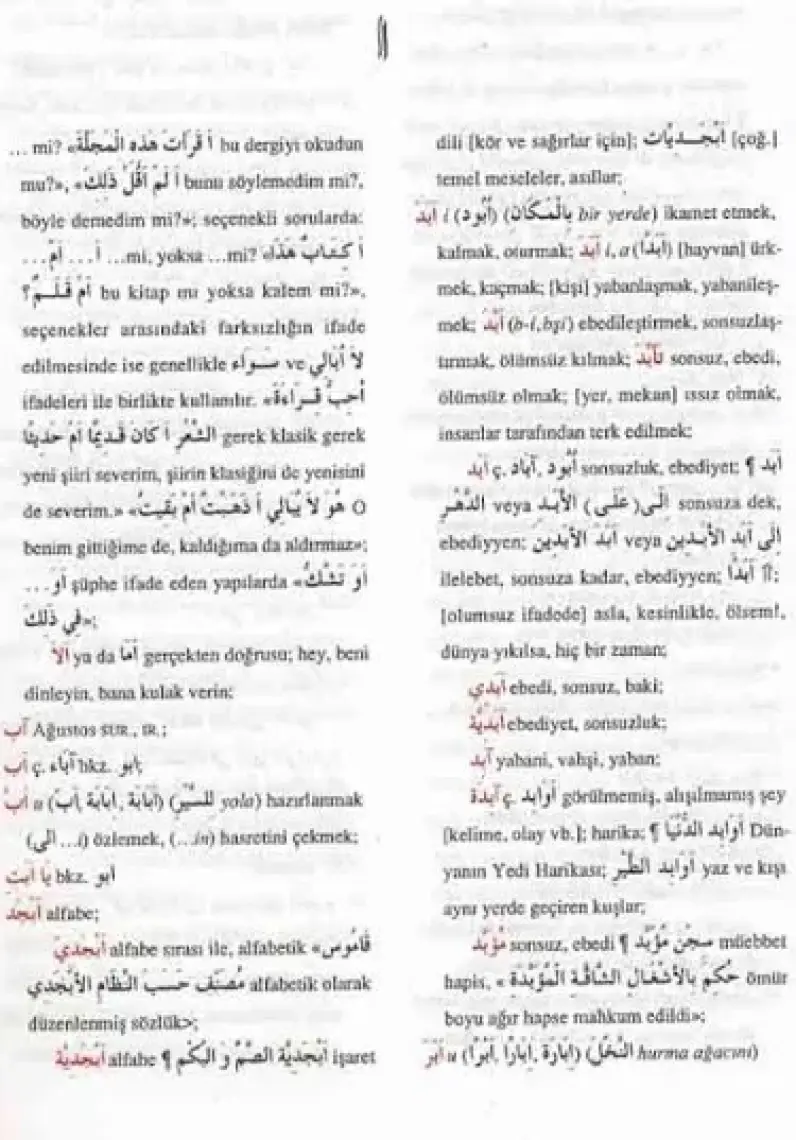 أ
... mi? «أَ قَرَأْتَ هَذِهِ الْمَجَلَّةَ bu dergiyi okudun
mu?», «أَ لَمْ أَقُلْ ذَلِكَ bunu söylemedim mi?,
böyle demedim mi?»; seçenekli sorularda:
أَ ... أَمْ ... ...mi, yoksa ...mi? «أَ كِتَابٌ هَذَا
أَمْ قَلَمٌ؟ bu kitap mı yoksa kalem mi?»,
seçenekler arasındaki farksızlığın ifade
edilmesinde ise genellikle سواء ve لاَ أُبَالِي
ifadeleri ile birlikte kullanılır. «أُحِبُّ قِرَاءَةَ
الشِّعْرِ أَ كَانَ قَدِيمًا أَمْ حَدِيثًا gerek klasik gerek
yeni şiiri severim, şiirin klasiğini de yenisini
de severim.» «هُوَ لاَ يُبَالِي أَ ذَهَبْتُ أَمْ بَقِيتُ O
benim gittiğime de, kaldığıma da aldırmaz»;
أَوَ ... şüphe ifade eden yapılarda «أَوَ تَشُكُّ
فِي ذَلِكَ»;
أَلاَ ya da أَمَا gerçekten doğrusu; hey, beni
dinleyin, bana kulak verin;
آب Ağustos SUR., IR.;
أَب ç. آبَاء bkz. أبو;
أَبَّ u (أَبّ, أَبَابَة, أَبَابَة) (لِلسَّيْرِ yola) hazırlanmak
(إلى ...i) özlemek, (...in) hasretini çekmek;
يَا أَبَتِ bkz. أبو
أَبْجَد alfabe;
أَبْجَدِيّ alfabe sırası ile, alfabetik «قَامُوس
مُصَنَّف حَسَبَ النِّظَامِ الأَبْجَدِي alfabetik olarak
düzenlenmiş sözlük»;
أَبْجَدِيَّة alfabe ¶ أَبْجَدِيَّة الصُّمِّ وَ الْبُكْمِ işaret
dili [kör ve sağırlar için]; أَبْجَدِيَّات [çoğ.]
temel meseleler, asıllar;
أَبَدَ i (أُبُود) (بِالْمَكَانِ bir yerde) ikamet etmek,
kalmak, oturmak; أَبَدَ i, a (أَبَدًا) [hayvan] ürk-
mek, kaçmak; [kişi] yabanlaşmak, yabanileş-
mek; أَبَّدَ (b-i, bşi) ebedileştirmek, sonsuzlaş-
tırmak, ölümsüz kılmak; تَأَبَّدَ sonsuz, ebedi,
ölümsüz olmak; [yer, mekan] ıssız olmak,
insanlar tarafından terk edilmek;
أَبَد ç. آبَاد, أُبُود sonsuzluk, ebediyet; ¶ أَبَدَ
الدَّهْرِ veya إلَى (عَلَى) الأَبَدِ sonsuza dek,
ebediyyen; أَبَدَ الأَبَدِين veya إلَى أَبَدِ الأَبَدِينَ
ilelebet, sonsuza kadar, ebediyyen; أَبَدًا 1;
[olumsuz ifadede] asla, kesinlikle, ölsem!,
dünya yıkılsa, hiç bir zaman;
أَبَدِي ebedi, sonsuz, baki;
أَبَدِيَّة ebediyet, sonsuzluk;
آبِد yabani, vahşi, yaban;
آبِدَة ç. أَوَابِد görülmemiş, alışılmamış şey
[kelime, olay vb.]; harika; ¶ أَوَابِد الدُّنْيَا Dün-
yanın Yedi Harikası; أَوَابِد الطَّيْرِ yaz ve kışı
aynı yerde geçiren kuşlar;
مُؤَبَّد sonsuz, ebedi ¶ سِجْن مُؤَبَّد müebbet
hapis, «حُكِمَ بِالأَشْغَال الشَّاقَّة الْمُؤَبَّدَة ömür
boyu ağır hapse mahkum edildi»;
أَبَرَ u (أَبْرًا, إبَارًا, إبَارَة) (النَّخْلَ hurma ağacını)